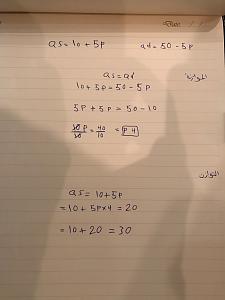 Date / /
qs = 10 + 5p qd = 50 - 5p
qs = qd
10 + 5p = 50 - 5p
5p + 5p = 50 - 10
10p/10 = 40/10 = p 4
التوازن
qs = 10 + 5p
= 10 + 5p×4 = 20
= 10 + 20 = 30